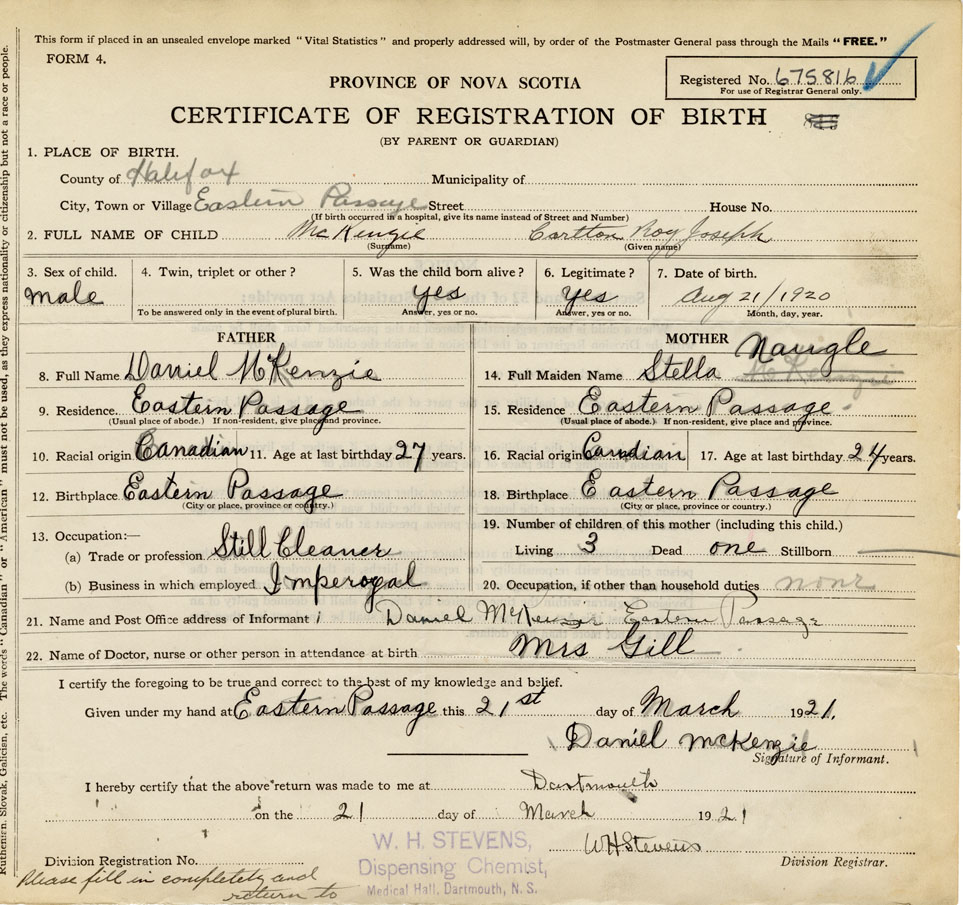 This form if placed in an unsealed envelope marked "Vital Statistics" and properly addressed will, by order of the Postmaster General pass through the Mails "FREE."
FORM 4.
Registered No. 675816
For use of Registrar General only.
PROVINCE OF NOVA SCOTIA
CERTIFICATE OF REGISTRATION OF BIRTH
(BY PARENT OR GUARDIAN)
1. PLACE OF BIRTH.
County of Halifax Municipality of
City, Town or Village Eastern Passage Street House No.
(If birth occurred in a hospital, give its name instead of Street and Number)
2. FULL NAME OF CHILD McKenzie Carlton Roy Joseph
(Surname) (Given name)
3. Sex of child. 4. Twin, triplet or other? 5. Was the child born alive? 6. Legitimate? 7. Date of birth.
male yes yes Aug 21/1920
To be answered only in the event of plural birth. Answer, yes or no. Answer, yes or no. Month, day, year.
FATHER
8. Full Name Daniel McKenzie
9. Residence. Eastern Passage
(Usual place of abode.) If non-resident, give place and province.
10. Racial origin Canadian 11. Age at last birthday 27 years.
12. Birthplace Eastern Passage
(City or place, province or country.)
13. Occupation:—
(a) Trade or profession Still Cleaner
(b) Business in which employed Imperoyal
MOTHER
Naugle
14. Full Maiden Name Stella McKenzie
15. Residence Eastern Passage
(Usual place of abode.) If non-resident, give place and province.
16. Racial origin Canadian 17. Age at last birthday 24 years.
18. Birthplace Eastern Passage
(City or place, province or country.)
19. Number of children of this mother (including this child.)
Living 3 Dead one Stillborn
20. Occupation, if other than household duties none
21. Name and Post Office address of Informant Daniel McKenzie Eastern Passage
22. Name of Doctor, nurse or other person in attendance at birth Mrs Gill
I certify the foregoing to be true and correct to the best of my knowledge and belief.
Given under my hand at Eastern Passage this 21st day of March 1921.
Daniel McKenzie
Signature of Informant.
I hereby certify that the above return was made to me at Dartmouth
on the 21 day of March 1921
W. H. STEVENS,
Dispensing Chemist,
Medical Hall, Dartmouth, N. S.
WHStevens
Division Registration No. Division Registrar.
Please fill in completely and
return to
Ruthenien, Slovak, Galician, etc. The words "Canadian" or "American" must not be used, as they express nationality or citizenship but not a race or people.